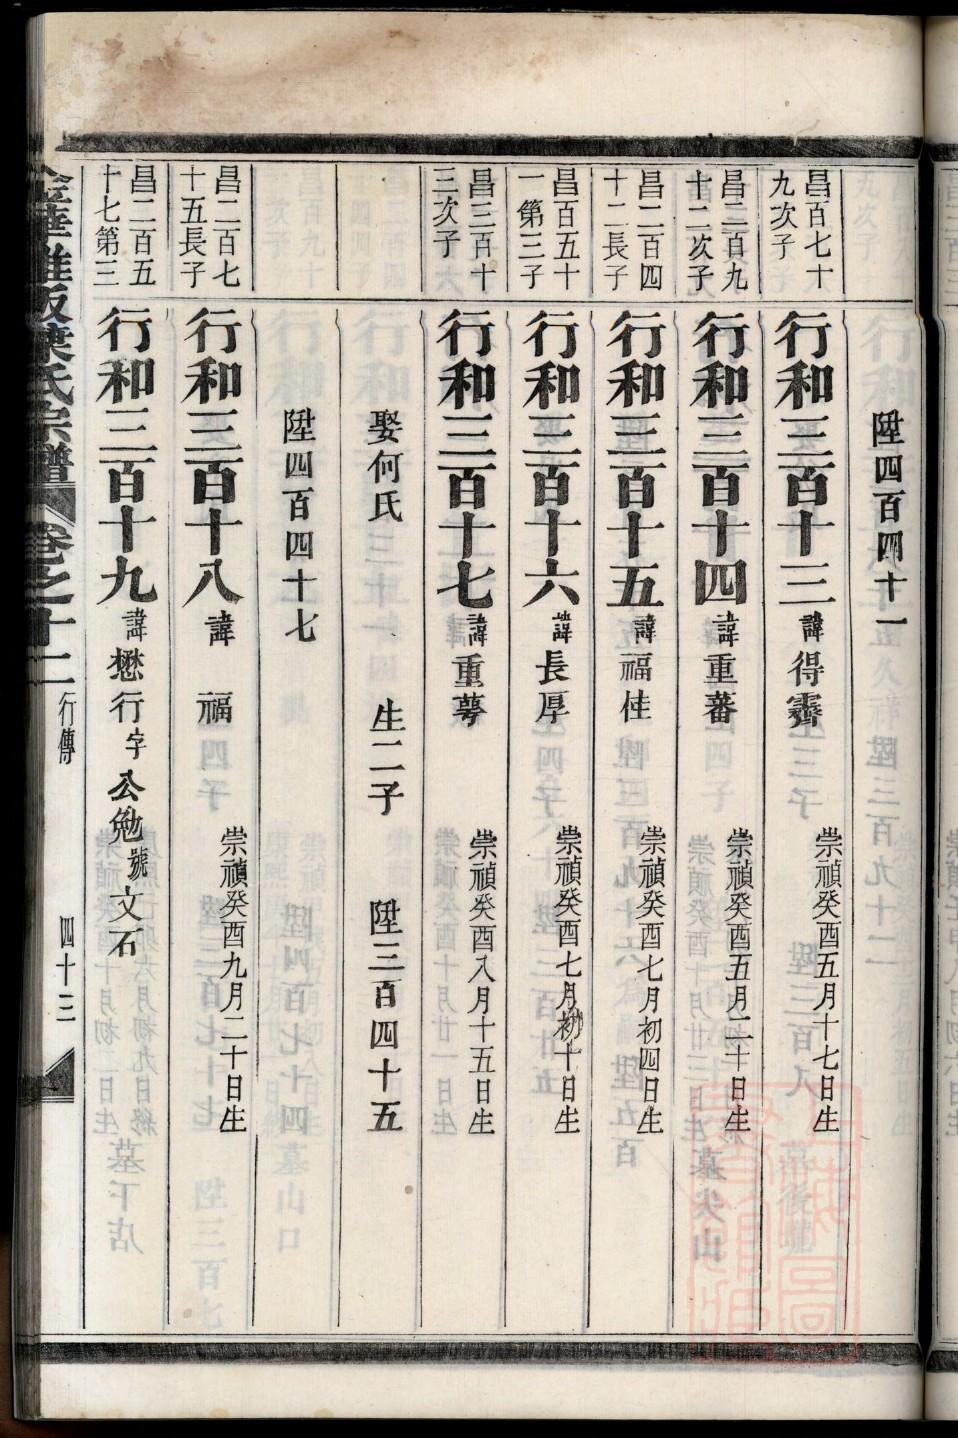 陞四百四十一
昌百七十九次子
行和三百十三 諱得霽 崇禎癸酉五月十七日生
昌二百九十二次子
行和三百十四 諱重蕃 崇禎癸酉五月二十日生
昌二百四十二長子
行和三百十五 諱福佳 崇禎癸酉七月初四日生
昌百五十一第三子
行和三百十六 諱長厚 崇禎癸酉七月初十日生
昌三百十三次子
行和三百十七 諱重萼 崇禎癸酉八月十五日生
娶何氏 生二子 陞三百四十五
陞四百四十七
昌二百七十五長子
行和三百十八 諱福 崇禎癸酉九月二十日生
昌二百五十七第三
行和三百十九 諱懋行字公勉號文石
氏宗譜 卷之十二 行傳 四十三